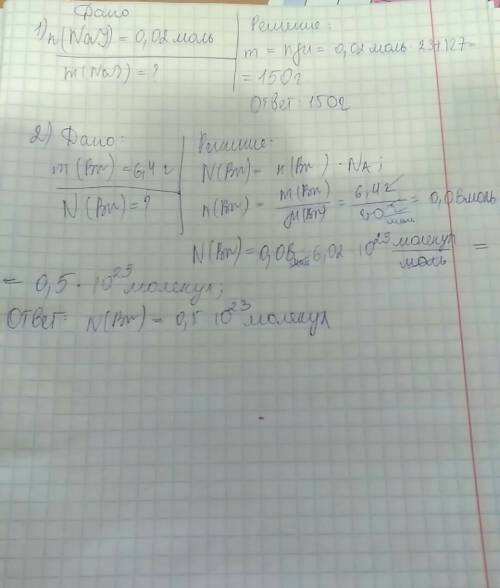 Дано
1) n(NaJ) = 0,02 моль
m(NaJ) = ?
Решение:
m = nμ = 0,02 моль · 23+127 =
= 150г
Ответ: 150г
2) Дано:
m(Br) = 6,4 г
N(Br) = ?
Решение:
N(Br) = n(Br) · NA;
n(Br) = m(Br)/μ(Br) = 6,4 г/80 г/моль = 0,08 моль
N(Br) = 0,08 моль · 6,02 · 10^23 молекул/моль =
= 0,5 · 10^23 молекул;
Ответ: N(Br) = 0,5 10^23 молекул